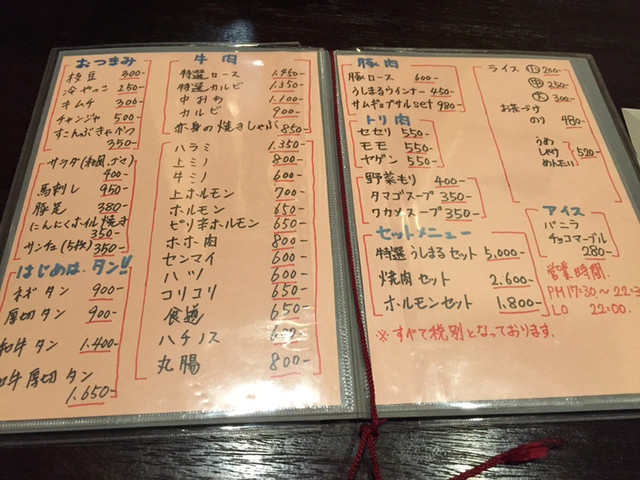 おつまみ
枝豆 300-
冷やっこ 250-
キムチ 300-
チャンジャ 500-
すこんぶきゃべつ
350-
サラダ(和風、ゴマ)
400-
馬刺し 950-
豚足 380-
にんにくホイル焼き
350-
サンチュ(5枚) 350-
はじめは、タン!!
ネギタン 900-
厚切タン 900-
和牛タン 1.400-
和牛厚切タン
1.650-
牛肉
特選ロース 1.450-
特選カルビ 1.350-
中おち 1.100-
カルビ 900-
赤身の焼きしゃぶ 850
ハラミ 1.350-
上ミノ 800-
牛ミノ 600-
上ホルモン 700
ホルモン 650-
ピリ辛ホルモン 650-
ホホ肉 800-
センマイ 600-
ハツ 600-
コリコリ 650-
食道 650-
ハチノス
丸腸 800-
豚肉
豚ロース 600-
うしまるウインナー 450-
サムギョプサルset 980-
トリ肉
セセリ 550-
モモ 550-
ヤゲン 550-
野菜もり 400-
タマゴスープ 350-
ワカメスープ 350-
セットメニュー
特選うしまるセット 5,000-
焼肉セット 2.600-
ホルモンセット 1.800-
※すべて税別となっております。
ライス 小 200-
中 250-
大 300-
お茶づけ
のり 480-
うめ
しゃけ 520-
めんたい
アイス
バニラ
チョコマーブル
280-
営業時間
PM17:30~22:3
LO 22:00.